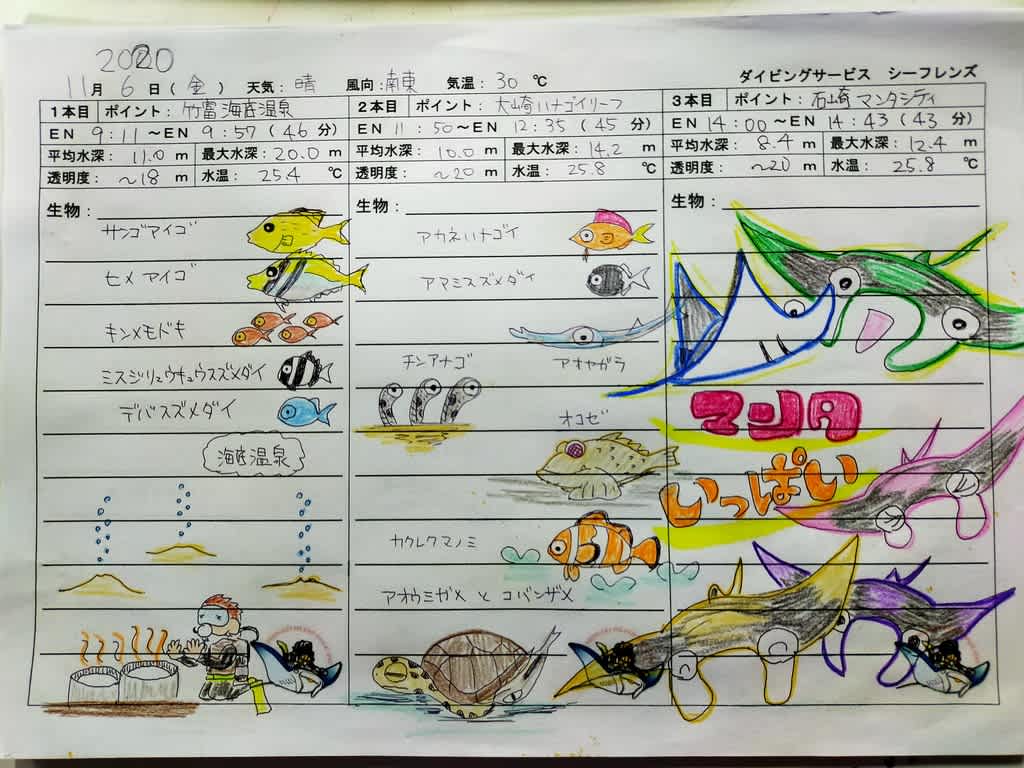 2020
11月 6日(金) 天気:晴 風向:南東 気温:30℃ ダイビングサービス シーフレンズ
1本目 ポイント:竹富海底温泉
EN 9:11~EN 9:57(46分)
平均水深: 11.0 m 最大水深:20.0 m
透明度: ~18 m 水温: 25.4 ℃
生物:
サンゴアイゴ
ヒメアイゴ
キンメモドキ
ミスジリュウキュウスズメダイ
デバスズメダイ
海底温泉
2本目 ポイント:大崎ハナゴイリーフ
EN 11:50~EN 12:35(45分)
平均水深: 10.0 m 最大水深:14.2 m
透明度: ~20 m 水温: 25.8 ℃
生物:
アカネハナゴイ
アマミスズメダイ
アオヤガラ
チンアナゴ
オコゼ
カクレクマノミ
アオウミガメ と コバンザメ
3本目 ポイント:石崎 マンタシティ
EN 14:00~EN 14:43(43分)
平均水深: 8.4 m 最大水深: 12.4 m
透明度: ~20 m 水温: 25.8 ℃
生物:
マンタ
いっぱい